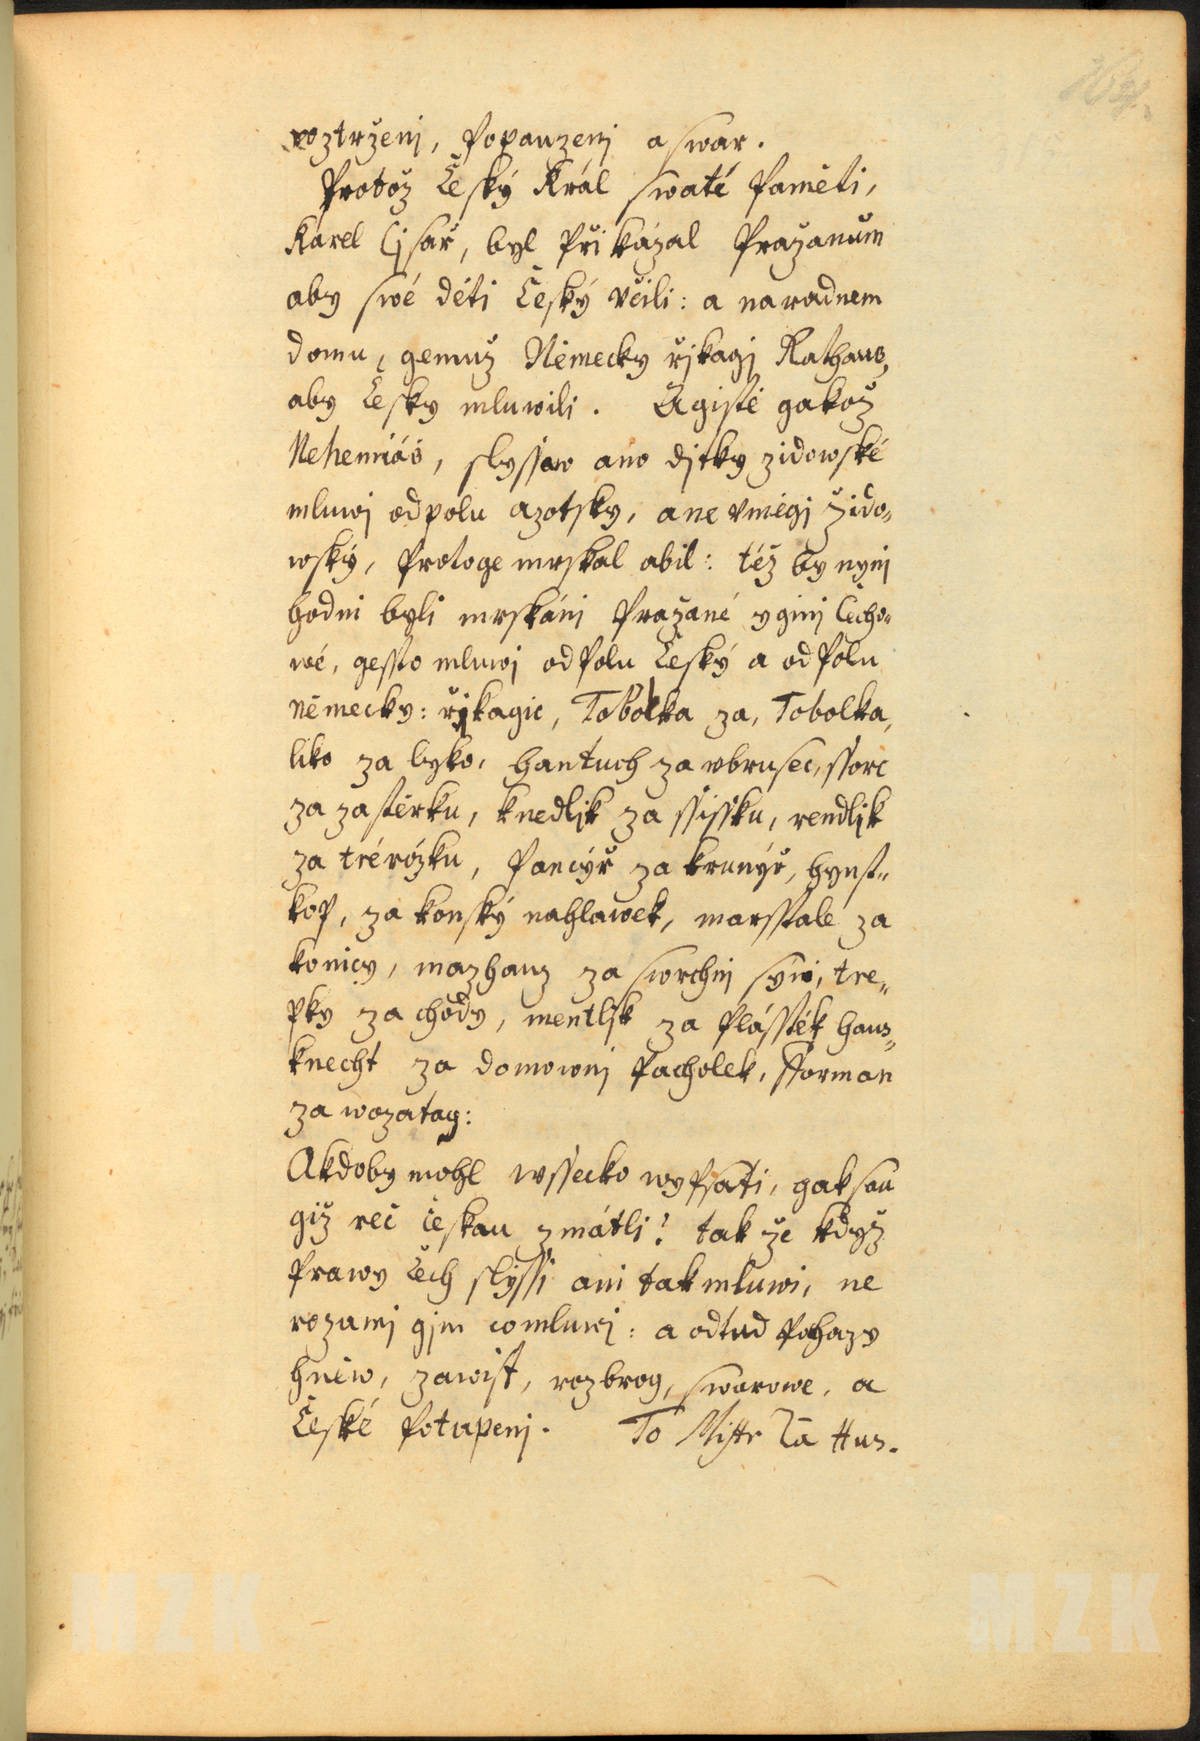 roztrženj, popauzenj a swár.
Protož Český Král swaté paměti,
Karel Cjsař, byl přikázal Pražanům
aby swé děti Český včili: a na radnem
domu, gemuž Německy řjkagj Rathaus,
aby Česky mluwili. A gistě gakož
Nehemiáš, slyssaw ano djtky židowské
mluwj odpolu azotsky, a ne vměgj žido„
wský, protoge mrskal abil: též by nynj
hodni byli mrskánj Pražané y ginj Čecho„
wé, gessto mluwj odpolu Český a odpolu
německy: řjkagic, Tobolka za, Tobolka,
liko za lyko, hantuch za vbrusec, ssorc
za zástěrku, knedljk za ssissku, rendljk
za trérožku, pancýř za krunýř, hynst„
kop, za konský nahlawek, marsstale za
konicy, mazhauz za swrchnj syni, tre„
pky za chody, mentljk za plásstěk haus„
knecht za domownj pacholek, fforman
za wozatag:
Akdoby mohl wssecko wypsati, gak sau
giž reč českau zmátli? tak že když
prawy Čech slyssi ani tak mluwi, ne
rozumj gjm co mluwj: a odtud pohazy
hněw, zawist, rozbrog, swarowe, a
České potupenj. To Mistr Jā Hus.
MZK MZK